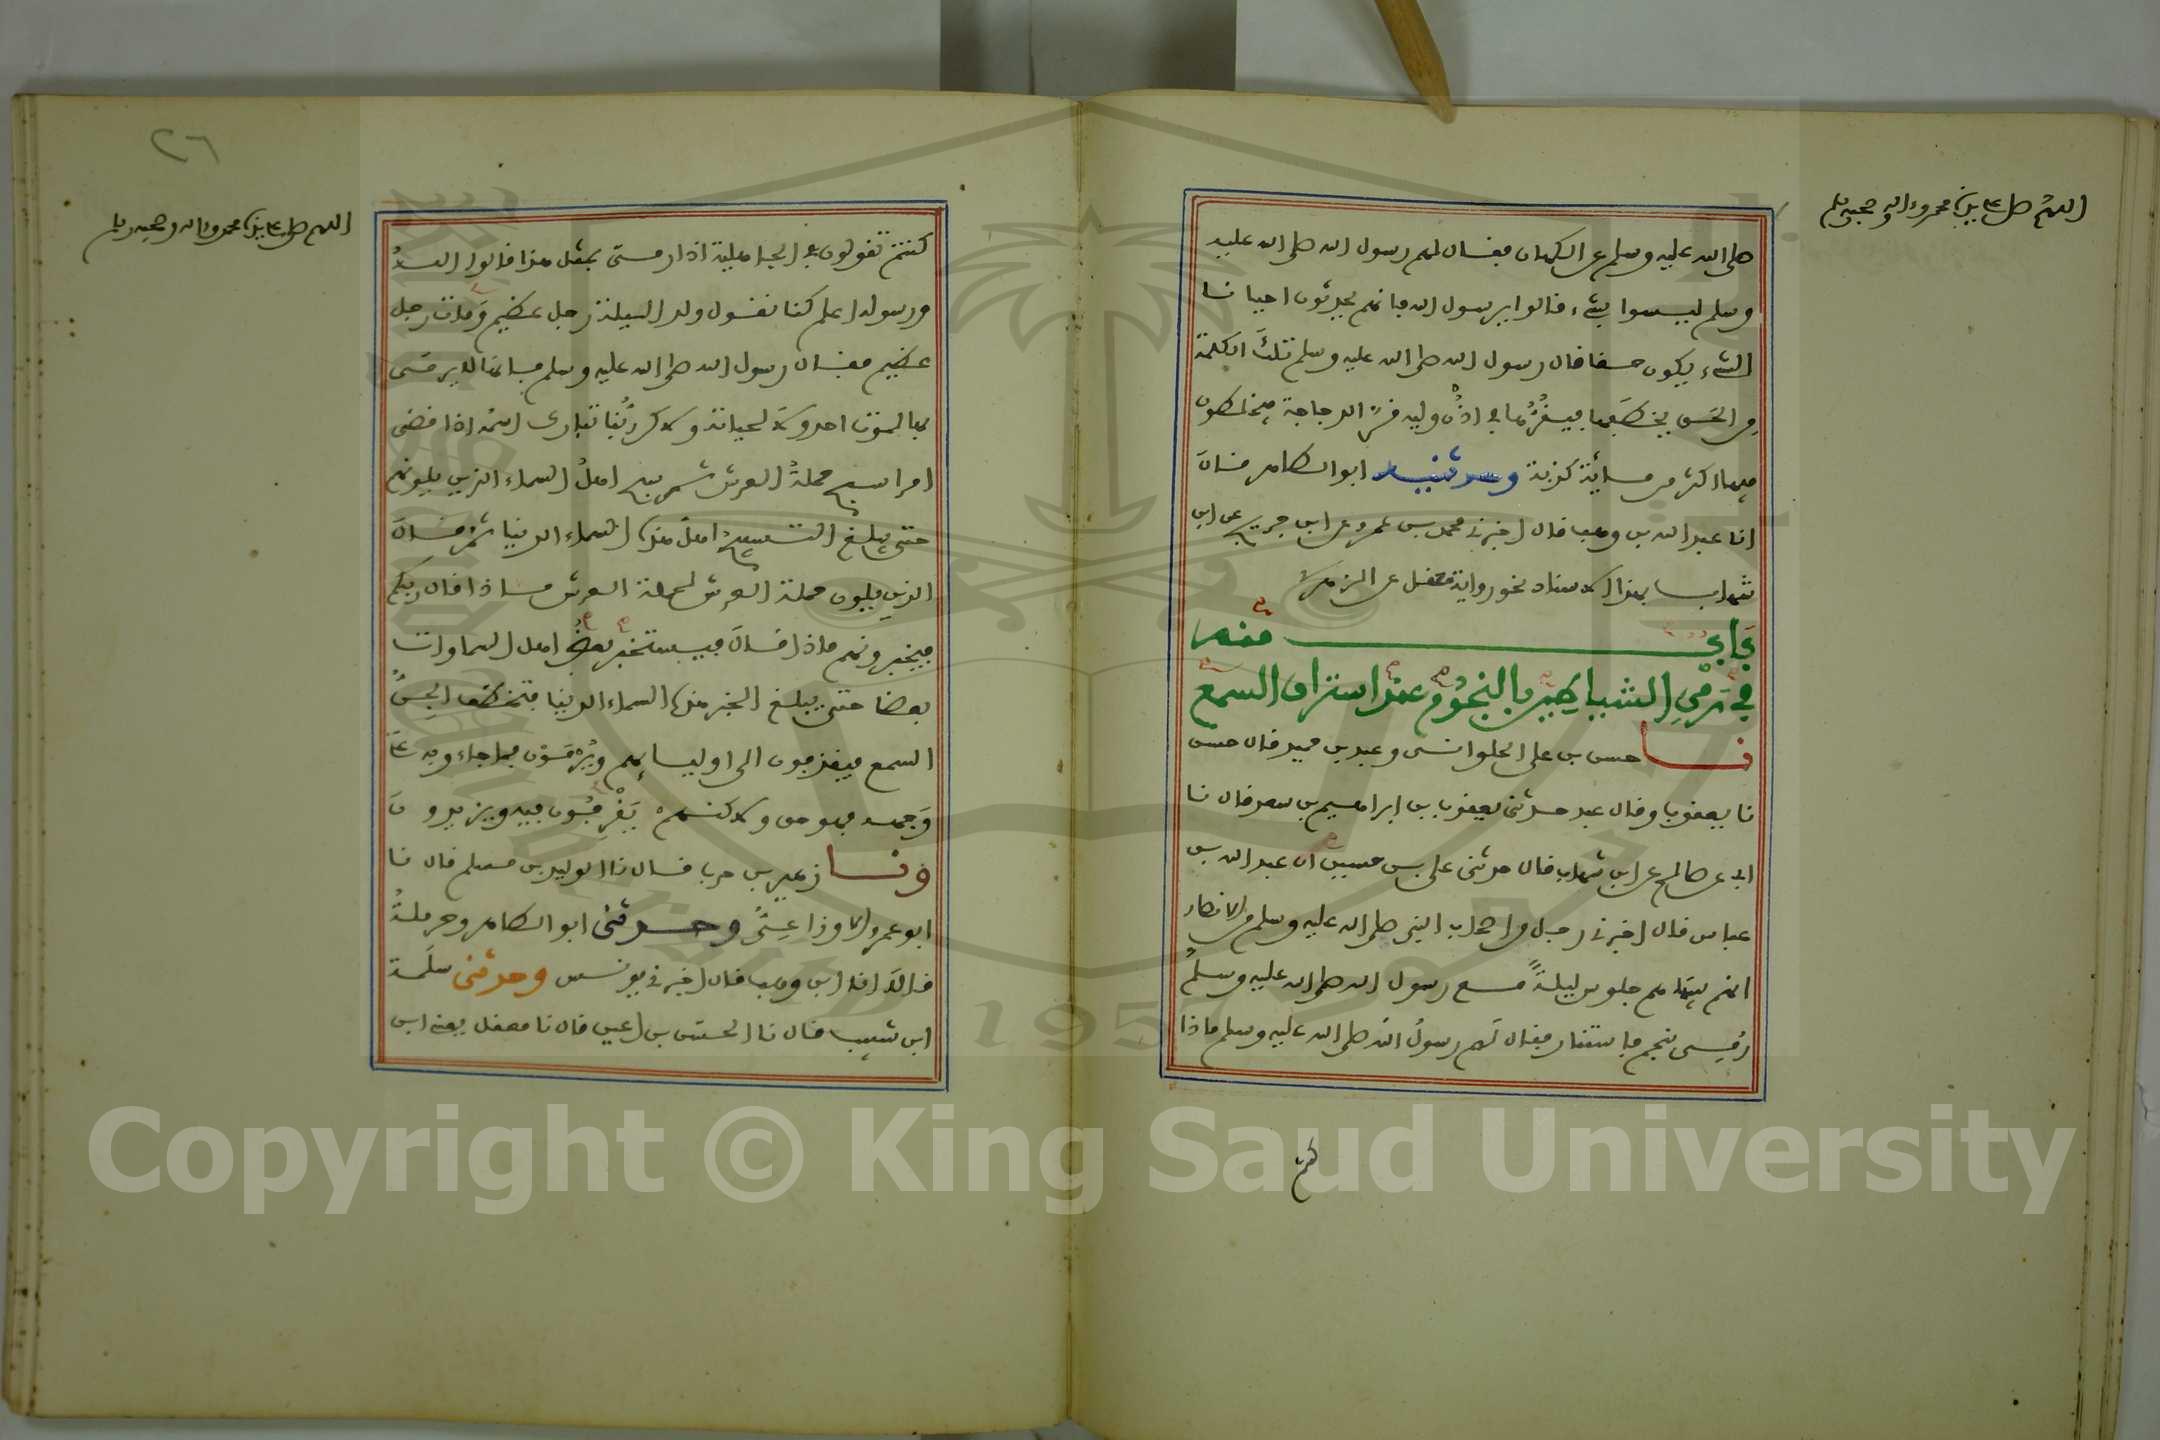 اللهم صل على سيدنا محمد وءاله وصحبه وسلم
صلى الله عليه وسلم عن الكهان فقال لهم رسول الله صلى الله عليه
وسلم ليسوا بشيء قالوا يرسول الله فإنهم يحدثون احيانا
الشيء يكون حقا قال رسول الله صلى الله عليه وسلم تلك الكلمة
من الجن يخطفها فيقرها في اذن وليه قر الدجاجة فيخلطون
فيها اكثر من مائة كذبة وحدثنيه ابو الطاهر قال
انا عبد الله بن وهب قال اخبرني محمد بن عمرو عن ابن جريج عن ابن
شهاب بهذا الاسناد نحو رواية معقل عن الزهري
باب منه
في رمي الشياطين بالنجوم عند استراق السمع
نا حسن بن علي الحلواني وعبد بن حميد قال حسن
نا يعقوب وقال عبد حدثني يعقوب بن ابراهيم بن سعد قال نا
ابي عن صالح عن ابن شهاب قال حدثني علي بن حسين ان عبد الله بن
عباس قال اخبرني رجل من اصحاب النبي صلى الله عليه وسلم من الانصار
انهم بينما هم جلوس ليلة مع رسول الله صلى الله عليه وسلم
رمي بنجم فاستنار فقال لهم رسول الله صلى الله عليه وسلم ماذا
كنتم
٢٦
اللهم صل على سيدنا محمد وءاله وصحبه وسلم
كنتم تقولون في الجاهلية اذا رمي بمثل هذا قالوا الله
ورسوله اعلم كنا نقول ولد الليلة رجل عظيم ومات رجل
عظيم فقال رسول الله صلى الله عليه وسلم فإنها لا يرمى
بها لموت احد ولا لحياته ولا كن ربنا تبارك اسمه اذا قضى
امرا سبح حملة العرش ثم سبح اهل السماء الذين يلونهم
حتى يبلغ التسبيح اهل هذه السماء الدنيا ثم قال
الذين يلون حملة العرش لحملة العرش ماذا قال ربكم
فيخبرونهم ماذا قال فيستخبر بعض اهل السماوات
بعضا حتى يبلغ الخبر هذه السماء الدنيا فتخطف الجن
السمع فيقذفون الى اوليايهم ويرمون فما جاءو به على
وجهه فهو حق ولا كنهم يقرفون فيه ويزيدون
ونا زهير بن حرب قال نا الوليد بن مسلم قال نا
ابو عمرو الاوزاعي وحدثني ابو الطاهر وحرملة
قالا انا ابن وهب قال اخبرني يونس وحدثني سلمة
ابن شبيب قال نا الحسن بن اعين قال نا معقل يعني ابن
Copyright © King Saud University
1957